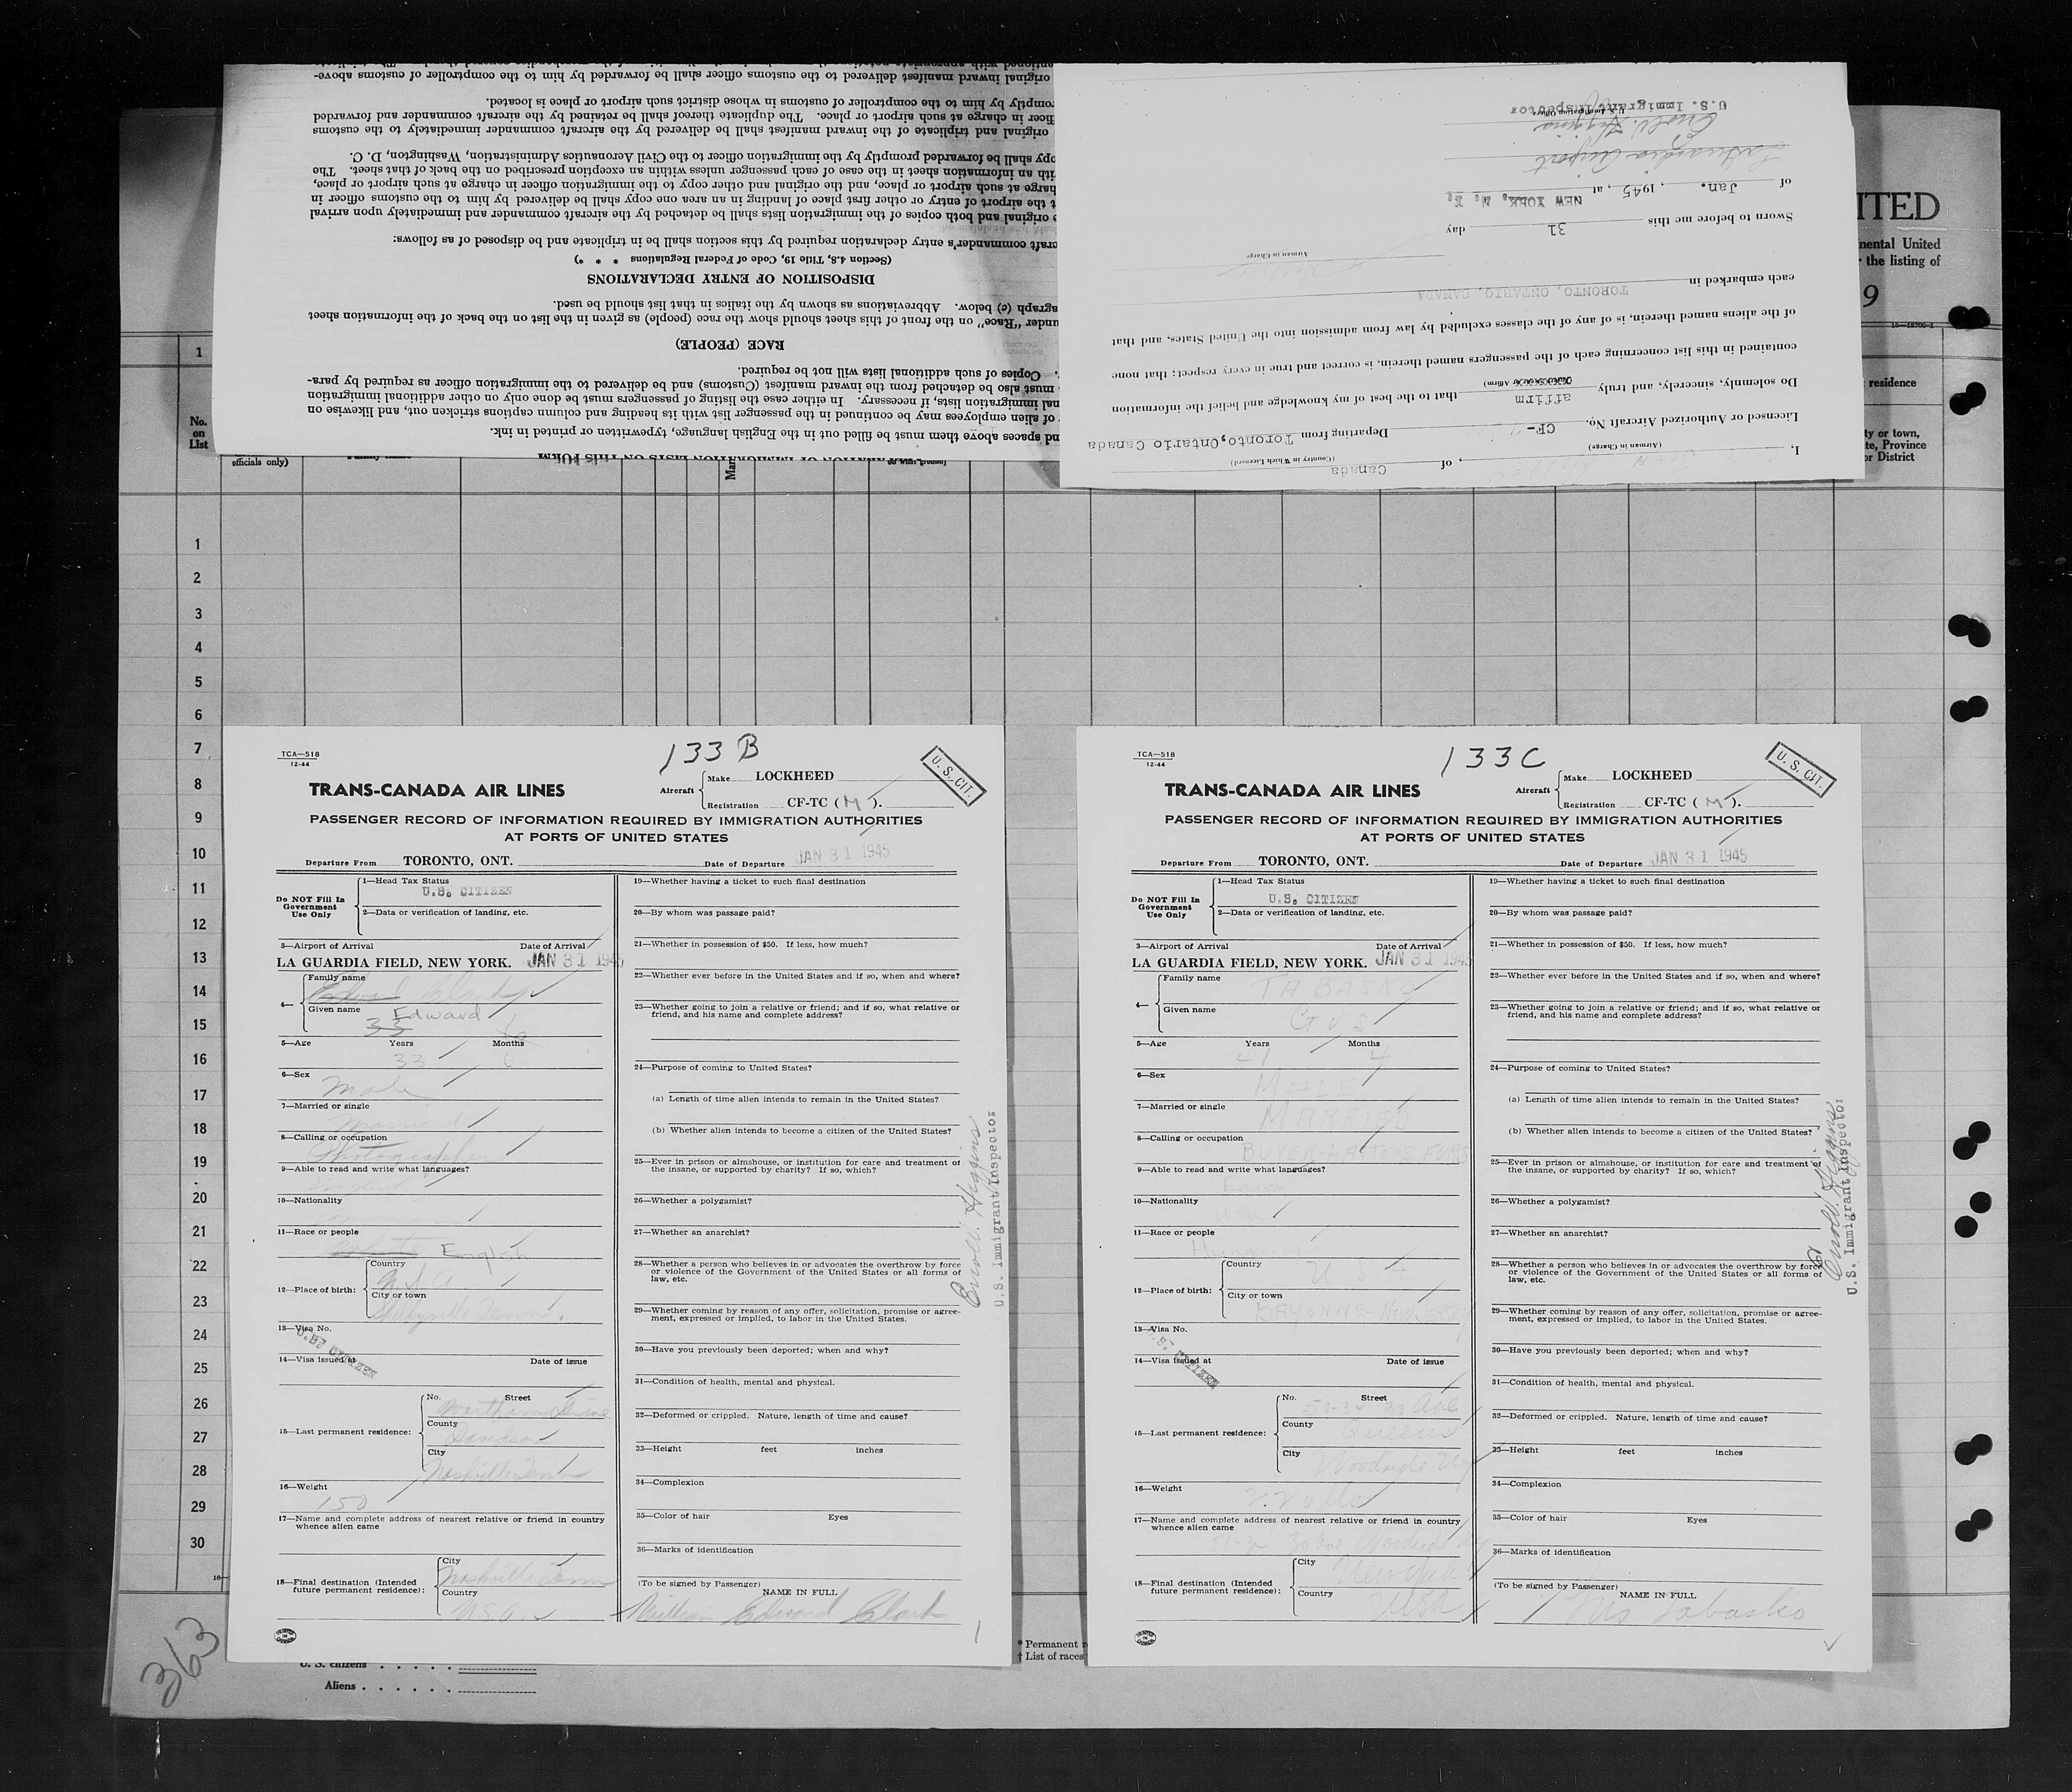 original inward manifest delivered to the customs officer shall be forwarded by him to the comptroller of customs above-
promptly by him to the comptroller of customs in whose district such airport or place is located.
officer in charge at such airport or place. The duplicate thereof shall be retained by the aircraft commander and forwarded
original and triplicate of the inward manifest shall be delivered by the aircraft commander immediately to the customs
copy shall be forwarded promptly by the immigration officer to the Civil Aeronautics Administration, Washington, D. C.
with an information sheet in the case of each passenger unless within an exception prescribed on the back of that sheet. The
charge at such airport or place, and the original and other copy to the immigration officer in charge at such airport or place,
t the airport of entry or other first place of landing in an area one copy shall be delivered by him to the customs officer in
e original and both copies of the immigration lists shall be detached by the aircraft commander and immediately upon arrival
craft commander's entry declaration required by this section shall be in triplicate and be disposed of as follows:
(Section 4.8, Title 19, Code of Federal Regulations * * *)
DISPOSITION OF ENTRY DECLARATIONS
agraph (c) below. Abbreviations as shown by the italics in that list should be used.
under "Race" on the front of this sheet should show the race (people) as given in the list on the back of the information sheet
RACE (PEOPLE)
. Copies of such additional lists will not be required.
must also be detached from the inward manifest (Customs) and be delivered to the immigration officer as required by para-
nal immigration lists, if necessary. In either case the listing of passengers must be done only on other additional immigration
of alien employees may be continued in the passenger list with its heading and column captions stricken out, and likewise on
nd spaces above them must be filled out in the English language, typewritten or printed in ink.
I,
(Airman in Charge)
, of Canada
(Country in Which Licensed)
Licensed or Authorized Aircraft No. CF-
Departing from Toronto, Ontario Canada
Do solemnly, sincerely, and truly affirm that to the best of my knowledge and belief the information
contained in this list concerning each of the passengers named therein, is correct and true in every respect; that none
of the aliens named therein, is of any of the classes excluded by law from admission into the United States, and that
each embarked in TORONTO, ONTARIO, CANADA
Airman in Charge
Sworn to before me this 31 day
of Jan. , 1945 , at NEW YORK, N. Y.
Errol V. Higgins
U.S. Immigrant Inspector
ITED
nental United
the listing of
9
residence
ty or town,
te, Province
or District
1
No.
on
List
officials only)
1
2
3
4
5
6
7
8
9
10
11
12
13
14
15
16
17
18
19
20
21
22
23
24
25
26
27
28
29
30
TCA—518
12-44
133 B
U. S. CIT.
TRANS-CANADA AIR LINES
Aircraft
Make LOCKHEED
Registration CF-TC ( M ).
PASSENGER RECORD OF INFORMATION REQUIRED BY IMMIGRATION AUTHORITIES
AT PORTS OF UNITED STATES
Departure From TORONTO, ONT. Date of Departure JAN 31 1945
Do NOT Fill In
Government
Use Only
1—Head Tax Status
U.S. CITIZEN
2—Data or verification of landing, etc.
3—Airport of Arrival Date of Arrival
LA GUARDIA FIELD, NEW YORK. JAN 31 1945
4— Family name
Edward Clark
Given name
Edward
33
5—Age Years Months
33 6
6—Sex
Male
7—Married or single
Married
8—Calling or occupation
Photographer
9—Able to read and write what languages?
10—Nationality
11—Race or people
English
12—Place of birth: Country
U.S.A.
City or town
13—Visa No.
U.S. CITIZEN
14—Visa issued at Date of issue
15—Last permanent residence: No. Street
County
Davidson
City
Nashville Tenn
16—Weight
150
17—Name and complete address of nearest relative or friend in country
whence alien came
18—Final destination (Intended
future permanent residence): City
Nashville Tenn
Country
U.S.A.
19—Whether having a ticket to such final destination
20—By whom was passage paid?
21—Whether in possession of $50. If less, how much?
22—Whether ever before in the United States and if so, when and where?
23—Whether going to join a relative or friend; and if so, what relative or
friend, and his name and complete address?
24—Purpose of coming to United States?
(a) Length of time alien intends to remain in the United States?
(b) Whether alien intends to become a citizen of the United States?
25—Ever in prison or almshouse, or institution for care and treatment of
the insane, or supported by charity? If so, which?
26—Whether a polygamist?
27—Whether an anarchist?
28—Whether a person who believes in or advocates the overthrow by force
or violence of the Government of the United States or all forms of
law, etc.
29—Whether coming by reason of any offer, solicitation, promise or agree-
ment, expressed or implied, to labor in the United States.
30—Have you previously been deported; when and why?
31—Condition of health, mental and physical.
32—Deformed or crippled. Nature, length of time and cause?
33—Height feet inches
34—Complexion
35—Color of hair Eyes
36—Marks of identification
(To be signed by Passenger)
NAME IN FULL
William Edward Clark
Errol V. Higgins
U.S. Immigrant Inspector
TCA—518
12-44
133C
U. S. CIT.
TRANS-CANADA AIR LINES
Aircraft
Make LOCKHEED
Registration CF-TC ( M ).
PASSENGER RECORD OF INFORMATION REQUIRED BY IMMIGRATION AUTHORITIES
AT PORTS OF UNITED STATES
Departure From TORONTO, ONT. Date of Departure JAN 31 1945
Do NOT Fill In
Government
Use Only
1—Head Tax Status
U.S. CITIZEN
2—Data or verification of landing, etc.
3—Airport of Arrival Date of Arrival
LA GUARDIA FIELD, NEW YORK. JAN 31 1945
4— Family name
TABASKO
Given name
GUS
5—Age Years Months
41 4
6—Sex
MALE
7—Married or single
MARRIED
8—Calling or occupation
BUYER-HATTERS FURS
9—Able to read and write what languages?
English
10—Nationality
USC
11—Race or people
Hungarian
12—Place of birth: Country
U S A
City or town
BAYONNE-New Jersey
13—Visa No.
U.S. CITIZEN
14—Visa issued at Date of issue
15—Last permanent residence: No. Street
30 Ave
County
Queens
City
Woodside NY
16—Weight
17—Name and complete address of nearest relative or friend in country
whence alien came
30 Ave Woodside NY
18—Final destination (Intended
future permanent residence): City
New York
Country
USA
19—Whether having a ticket to such final destination
20—By whom was passage paid?
21—Whether in possession of $50. If less, how much?
22—Whether ever before in the United States and if so, when and where?
23—Whether going to join a relative or friend; and if so, what relative or
friend, and his name and complete address?
24—Purpose of coming to United States?
(a) Length of time alien intends to remain in the United States?
(b) Whether alien intends to become a citizen of the United States?
25—Ever in prison or almshouse, or institution for care and treatment of
the insane, or supported by charity? If so, which?
26—Whether a polygamist?
27—Whether an anarchist?
28—Whether a person who believes in or advocates the overthrow by force
or violence of the Government of the United States or all forms of
law, etc.
29—Whether coming by reason of any offer, solicitation, promise or agree-
ment, expressed or implied, to labor in the United States.
30—Have you previously been deported; when and why?
31—Condition of health, mental and physical.
32—Deformed or crippled. Nature, length of time and cause?
33—Height feet inches
34—Complexion
35—Color of hair Eyes
36—Marks of identification
(To be signed by Passenger)
NAME IN FULL
Gus Tabasko
Errol V. Higgins
U.S. Immigrant Inspector
363
U. S. citizens
Aliens
* Permanent r
† List of races